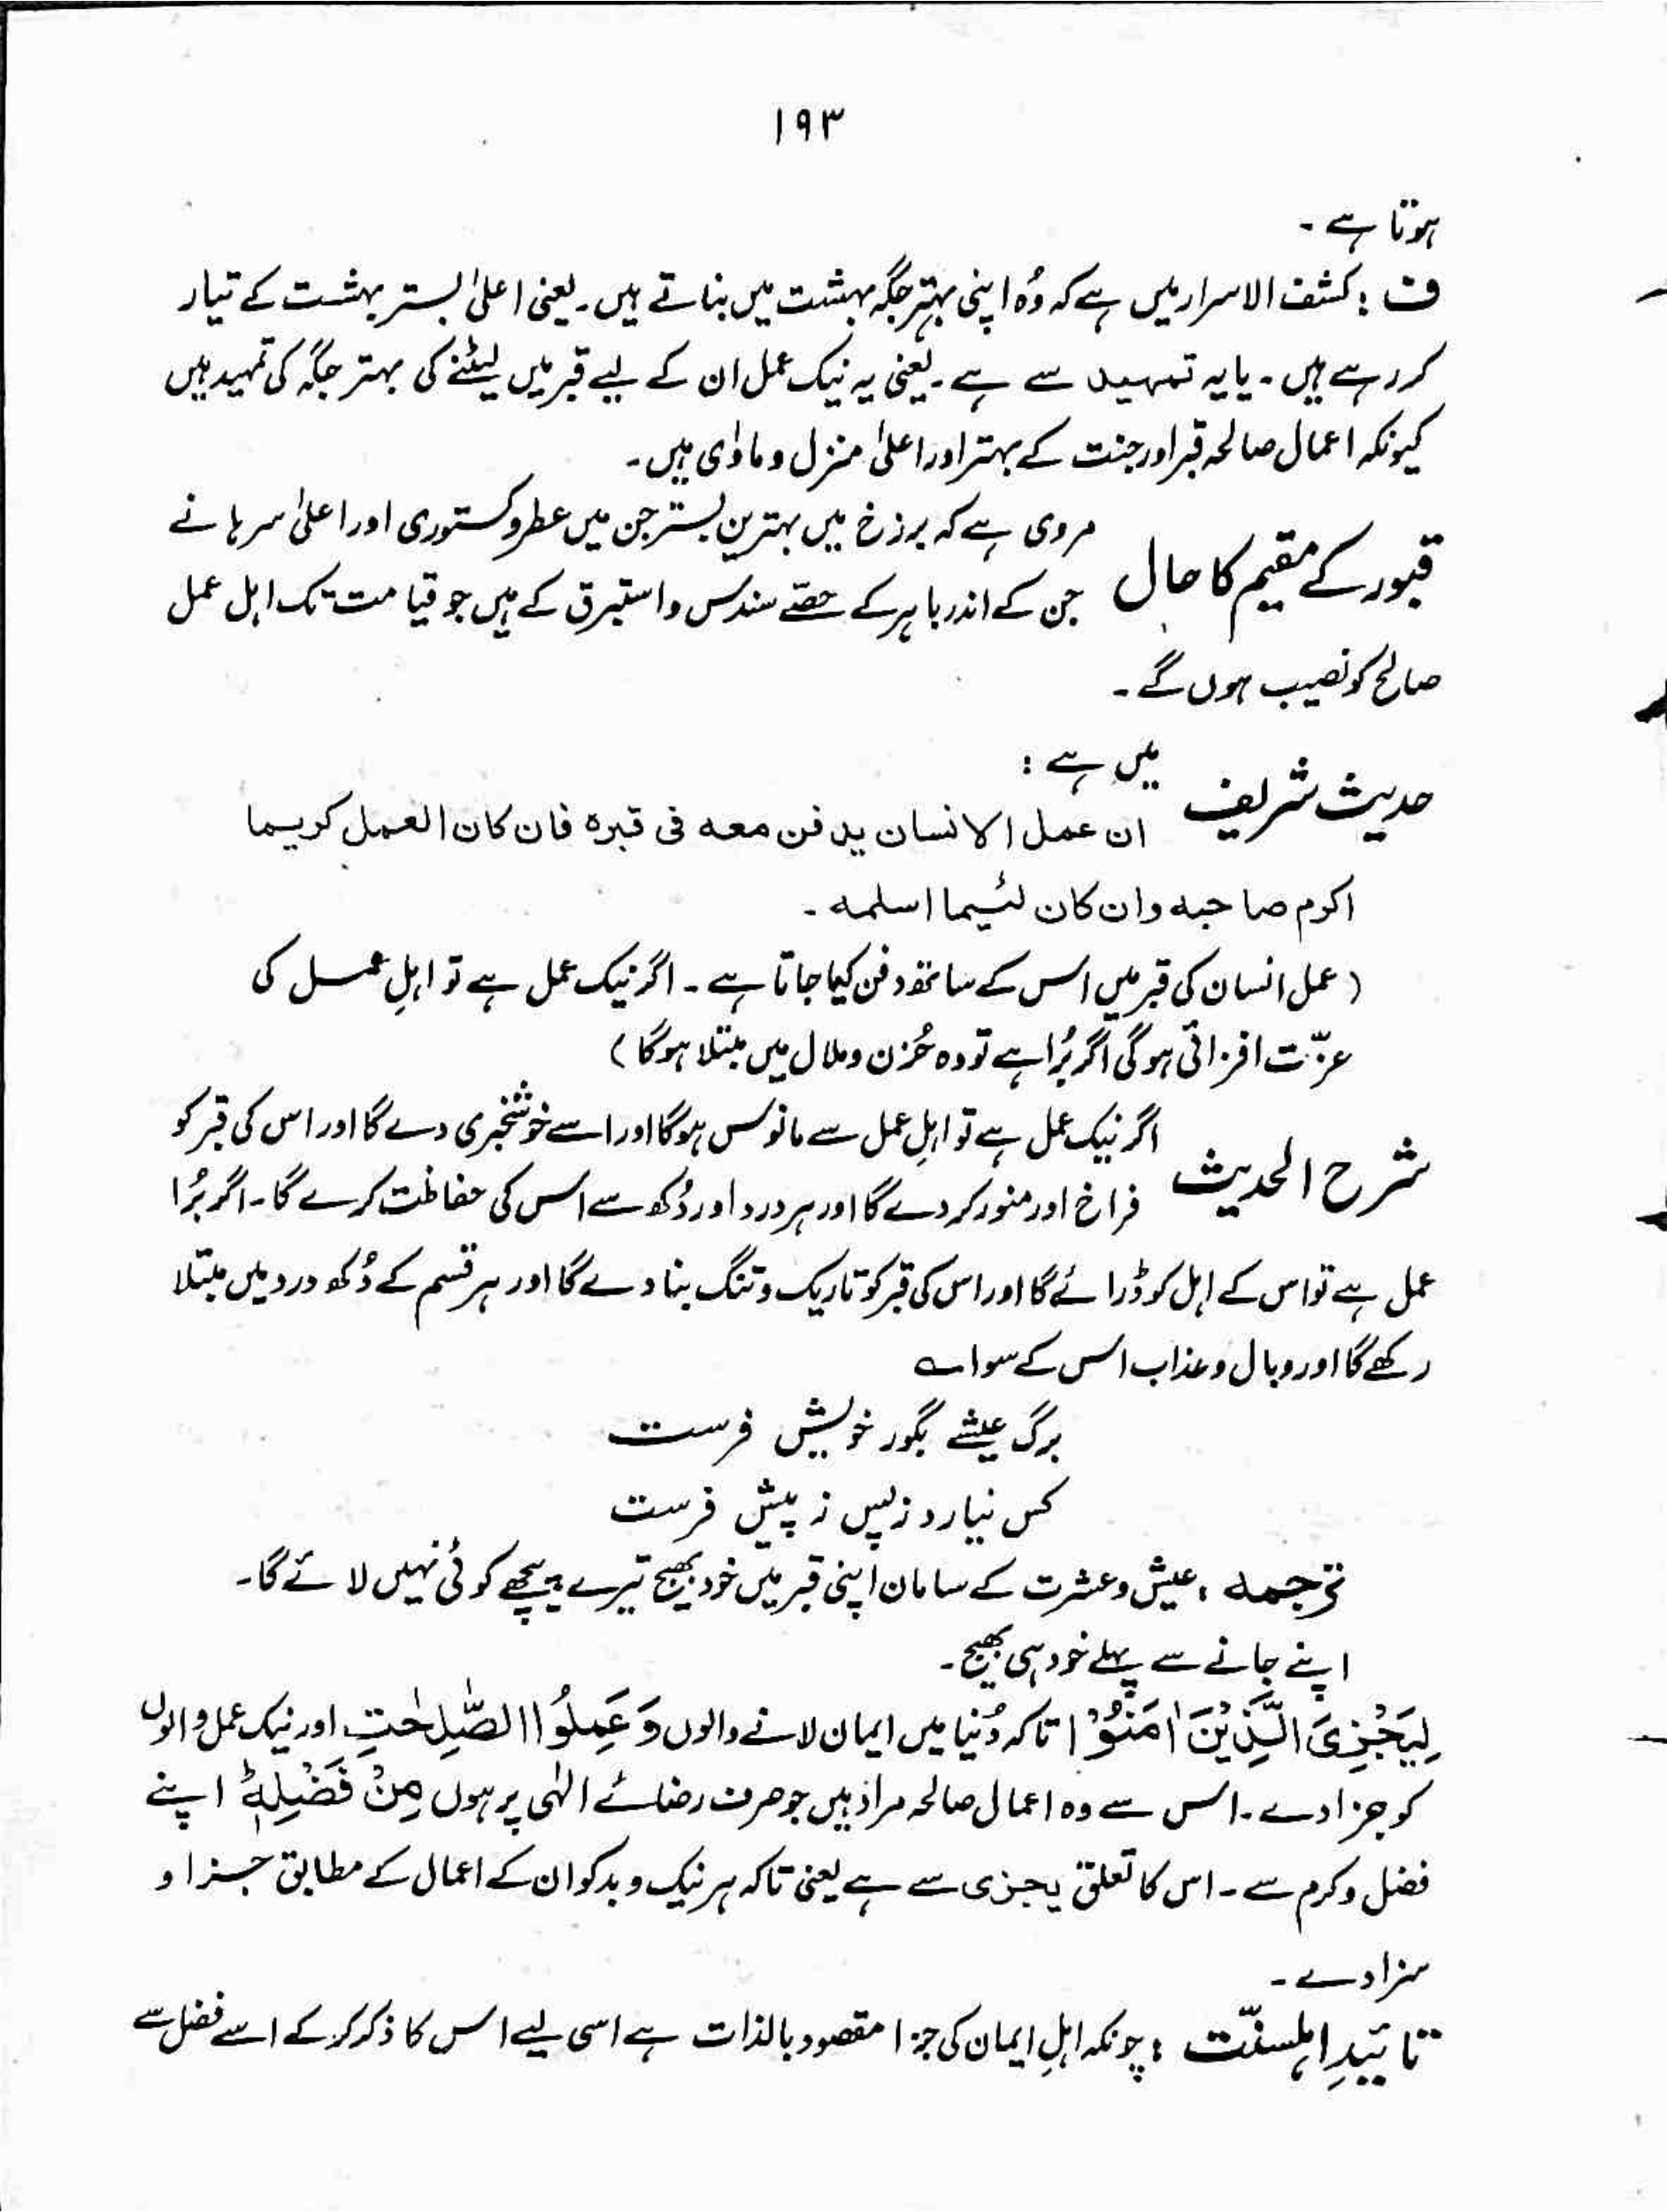 ۱۹۳
ہوتا ہے ۔
ف : کشف الاسرار میں ہے کہ وُہ اپنی بہتر جگہ بہشت میں بناتے ہیں ۔ یعنی اعلیٰ بستر بہشت کے تیار
کر رہے ہیں ۔ یا یہ تمہید سے ہے ۔ یعنی یہ نیک عمل ان کے لیے قبر میں لیٹنے کی بہتر جگہ کی تمہید ہیں
کیونکہ اعمال صالحہ قبر اور جنت کے بہتر اور اعلیٰ منزل و ماوٰی ہیں ۔
قبور کے مقیم کا حال مروی ہے کہ برزخ میں بہترین بستر جن میں عطر و کستوری اور اعلیٰ سرہانے
جن کے اندر باہر کے حصّے سندس و استبرق کے ہیں جو قیامت تک اہل عمل
صالح کو نصیب ہوں گے ۔
حدیث شریف میں ہے :
ان عمل الانسان یدفن معه فی قبرہ فان کان العمل کریما
اکرم صاحبه وان کان لئیما اسلمه ۔
( عمل انسان کی قبر میں اس کے ساتھ دفن کیا جاتا ہے ۔ اگر نیک عمل ہے تو اہلِ عمل کی
عزّت افزائی ہوگی اگر بُرا ہے تو وہ حُزن و ملال میں مبتلا ہوگا )
شرح الحدیث اگر نیک عمل ہے تو اہلِ عمل سے مانوس ہوگا اور اسے خوشخبری دے گا اور اس کی قبر کو
فراخ اور منور کر دے گا اور ہر درد اور دُکھ سے اس کی حفاظت کرے گا ۔ اگر بُرا
عمل ہے تو اس کے اہل کو ڈرائے گا اور اس کی قبر کو تاریک و تنگ بنا دے گا اور ہر قسم کے دُکھ درد میں مبتلا
رکھے گا اور وبال و عذاب اس کے سوا ؎
برگ عیشے بگور خویش فرست
کس نیارد ز پس ز پیش فرست
ترجمہ : عیش و عشرت کے سامان اپنی قبر میں خود بھیج تیرے پیچھے کوئی نہیں لائے گا ۔
اپنے جانے سے پہلے خود ہی بھیج ۔
لِیَجْزِیَ الَّذِیْنَ اٰمَنُوْا تاکہ دُنیا میں ایمان لانے والوں وَ عَمِلُوا الصّٰلِحٰتِ اور نیک عمل والوں
کو جزا دے ۔ اس سے وہ اعمال صالحہ مراد ہیں جو صرف رضائے الٰہی پر ہوں مِنْ فَضْلِهٖ ؕ اپنے
فضل و کرم سے ۔ اس کا تعلق یجزی سے ہے یعنی تاکہ ہر نیک و بد کو ان کے اعمال کے مطابق جزا و
سزا دے ۔
تائیدِ اہلسنّت : چونکہ اہلِ ایمان کی جزا مقصود بالذات ہے اسی لیے اس کا ذکر کر کے اسے فضل سے